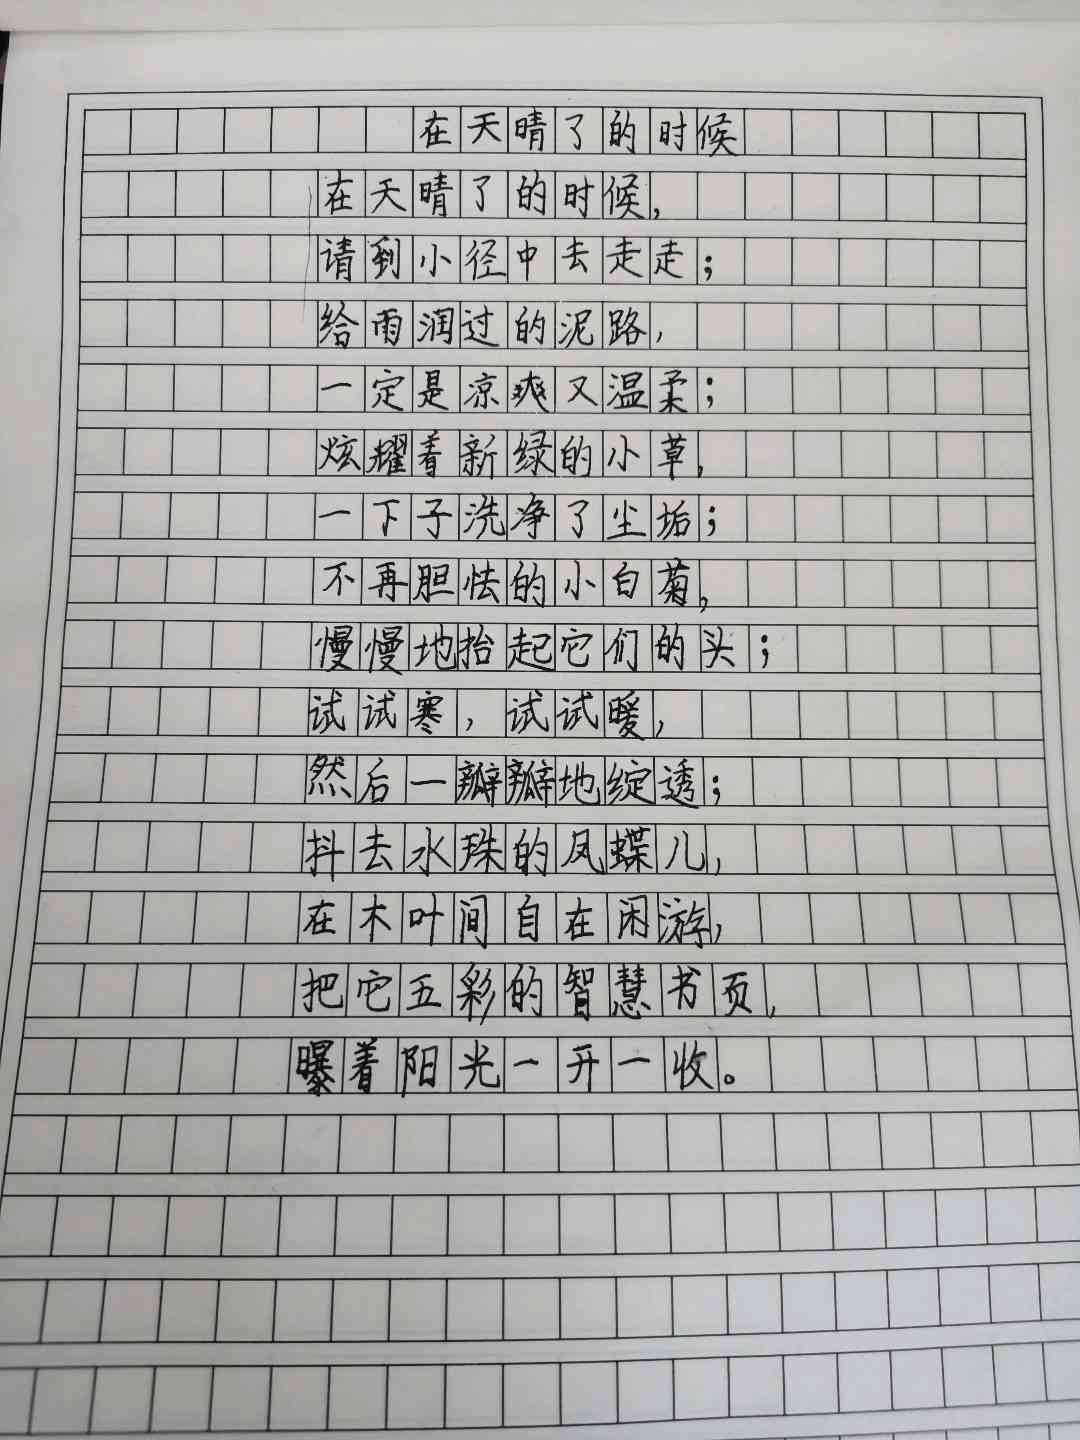 在天晴了的时候
在天晴了的时候，
请到小径中去走走；
给雨润过的泥路，
一定是凉爽又温柔；
炫耀着新绿的小草，
一下子洗净了尘垢；
不再胆怯的小白菊，
慢慢地抬起它们的头；
试试寒，试试暖，
然后一瓣瓣地绽透；
抖去水珠的凤蝶儿，
在木叶间自在闲游，
把它五彩的智慧书页，
曝着阳光一开一收。